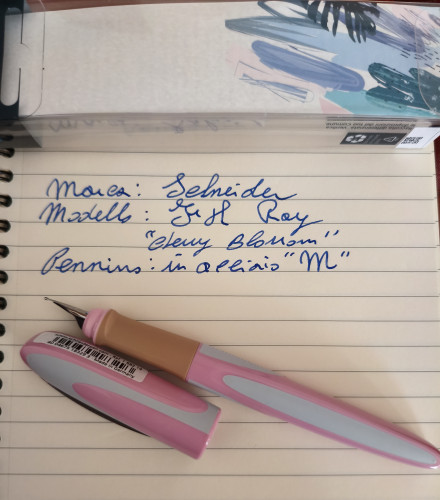 Marca: Schneider
Modello: Ray
"Cherry Blossom"
Pennino: in acciaio "M"